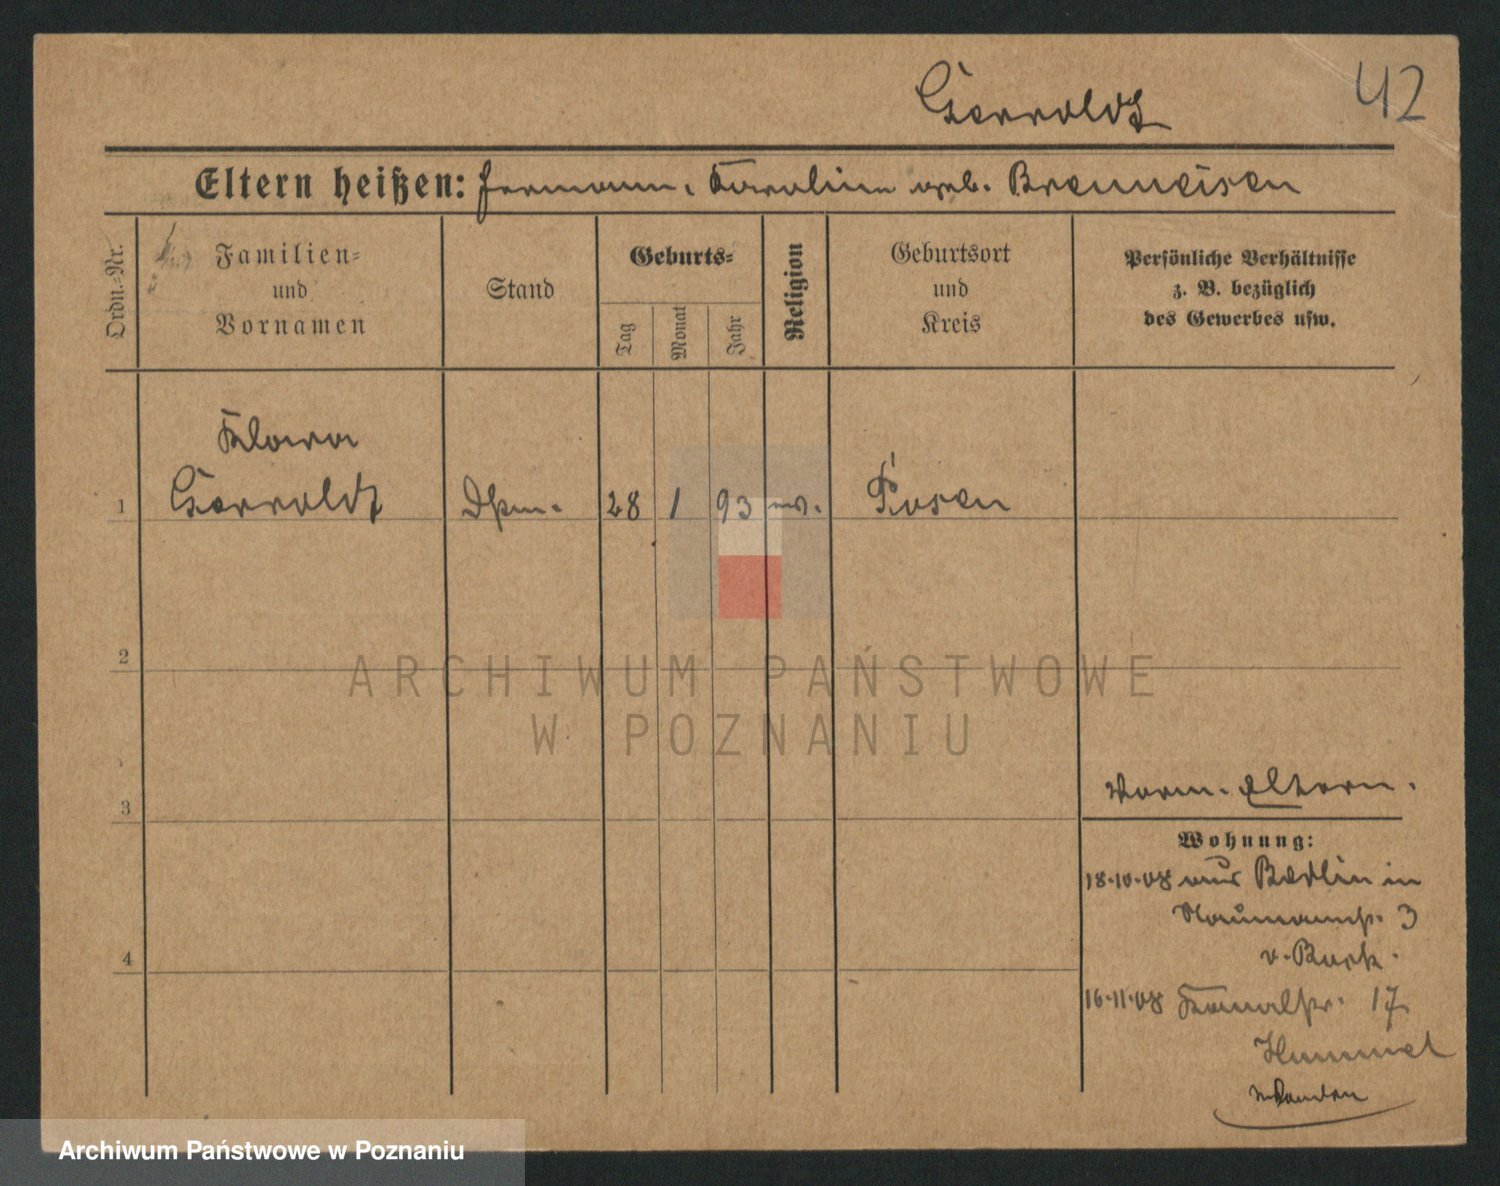 Gerroldt
42
Eltern heißen: Hermann. Karoline geb. Brenneisen
Ordn.-Nr.
Familien-
und
Vornamen
Stand
Geburts-
Tag
Monat
Jahr
Religion
Geburtsort
und
Kreis
Persönliche Verhältnisse
z. B. bezüglich
des Gewerbes usw.
Klara
1 Gerroldt 28 1 93 Posen
2
ARCHIWUM PAŃSTWOWE
W POZNANIU
3
Eltern.
Wohnung:
18.10.08 aus Berlin in
Naumannstr. 3
4
16.11.08 Kanalstr. 17
Hummel
Archiwum Państwowe w Poznaniu